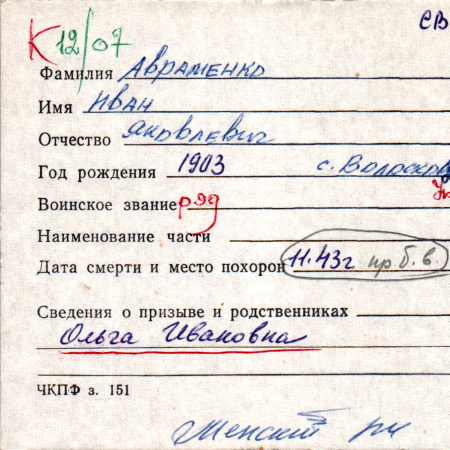 СВ
К 12/07
Фамилия Авраменко
Имя Иван
Отчество Яковлевич
Год рождения 1903 с. Волосков
Воинское звание ряд
Наименование части
Дата смерти и место похорон 11.43г пр б.в.
Сведения о призыве и родственниках
Ольга Ивановна
ЧКПФ з. 151
Менский рк